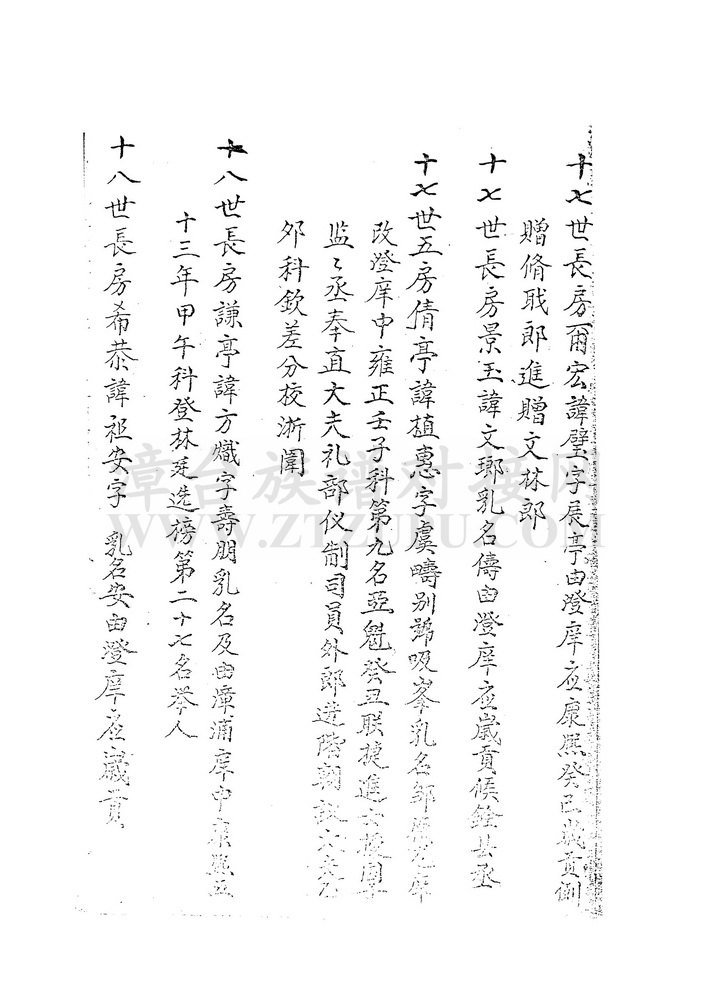 十七世長房爾宏諱璧字展亭由澄庠应康熙癸巳歲貢例
贈脩職郎進贈文林郎
十七世長房景玉諱文瑯乳名儔由澄庠应歲貢候銓县丞
十七世五房倩亭諱植惠字虞疇别號吸峯乳名邹庠
改澄庠中雍正壬子科第九名亞魁癸丑联捷進士授國子
监々丞奉直大夫礼部仪制司員外郎进階朝議大夫乙
夘科欽差分校浙闈
十八世長房謙亭諱方熾字壽朋乳名及由漳浦庠中康熙五
十三年甲午科登林廷选榜第二十七名举人
十八世長房希恭諱祖安字 乳名安由澄庠应歲貢
章台族谱对接网
WWW.ZTZUPU.COM